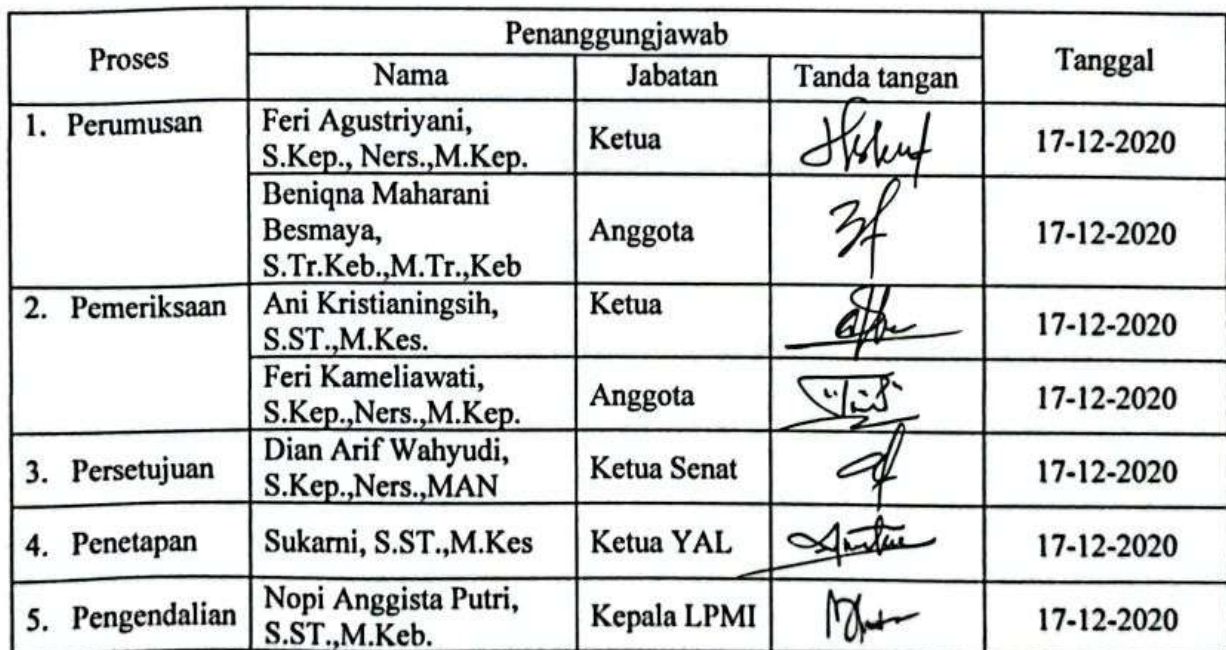 Proses
Penanggungjawab
Tanggal
Nama
Jabatan
Tanda tangan
1. Perumusan
Feri Agustriyani,
S.Kep., Ners.,M.Kep.
Ketua
17-12-2020
Beniqna Maharani
Besmaya,
S.Tr.Keb.,M.Tr.,Keb
Anggota
17-12-2020
2. Pemeriksaan
Ani Kristianingsih,
S.ST.,M.Kes.
Ketua
17-12-2020
Feri Kameliawati,
S.Kep.,Ners.,M.Kep.
Anggota
17-12-2020
3. Persetujuan
Dian Arif Wahyudi,
S.Kep.,Ners.,MAN
Ketua Senat
17-12-2020
4. Penetapan
Sukarni, S.ST.,M.Kes
Ketua YAL
17-12-2020
5. Pengendalian
Nopi Anggista Putri,
S.ST.,M.Keb.
Kepala LPMI
17-12-2020